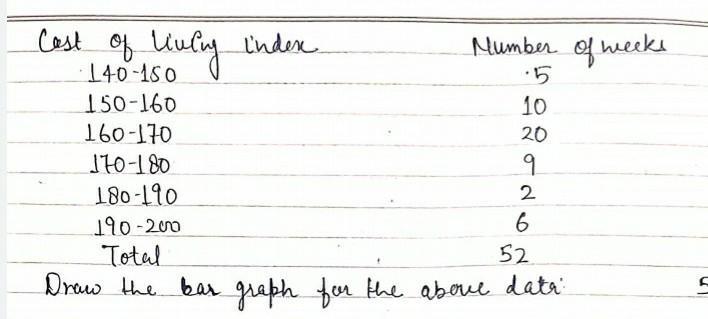 Cost of living index Number of weeks
140-150 5
150-160 10
160-170 20
170-180 9
180-190 2
190-200 6
Total 52
Draw the bar graph for the above data: 5